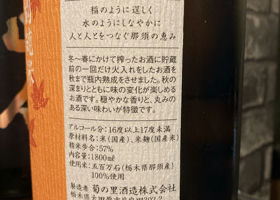 稲のように逞しく
水のようにしなやかに
人と人とをつなぐ那須の恵み
冬～春にかけて搾ったお酒に貯蔵
前の一回だけ火入れをしたお酒を
秋まで瓶内熟成をさせました。秋の
深まりとともに味の変化が楽しめる
お酒です。穏やかな香りと、丸みの
ある深い味わいが特徴です。
アルコール分:16度以上17度未満
原材料名:米(国産)、米麹(国産米)
精米歩合:57%
内容量:1800ml
使用米:五百万石(栃木県那須産)
100%使用
製造者 菊の里酒造株式会社